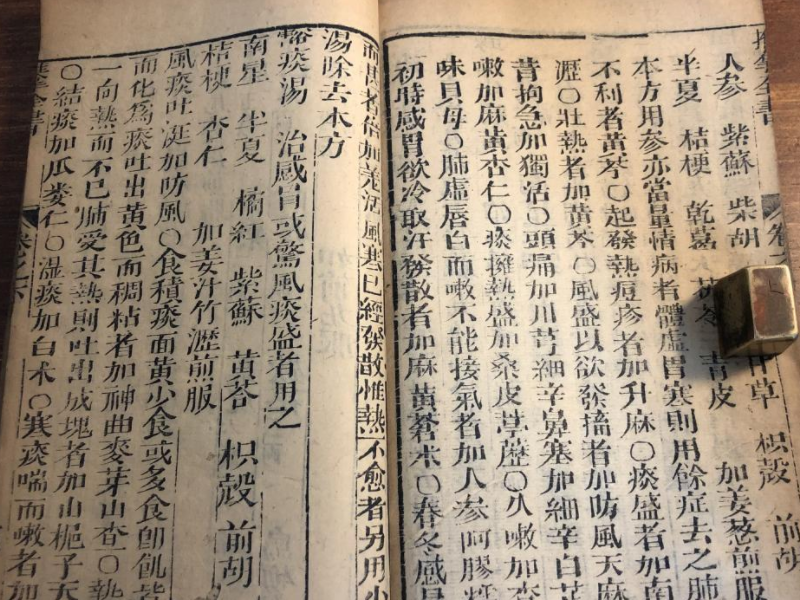 人参 紫蘇 柴胡 草 枳殼 前胡
半夏 桔梗 乾葛 茯苓 青皮 加姜葱煎服
本方用参亦當量情病者體虛胃寒則用餘症去之肺
不利者黃芩〇起發熱痘疹者加升麻〇痰盛者加南
瀝〇壯熱者加黃芩〇風盛以欲發搐者加防風天麻
昔拘急加獨活〇頭痛加川芎細辛鼻塞加細辛白芷
嗽加麻黃杏仁〇痰擁熱盛加桑皮葶藶〇久嗽加杏
味貝母〇肺虛唇白而嗽不能接氣者加人参阿膠
初時感冒欲冷取汗發散者加麻黃蒼术〇春冬感冒
者倍加羌活風寒已經發散惟熱不愈者另用
湯除去本方
豁痰湯 治感冒或驚風痰盛者用之
南星 半夏 橘紅 紫蘇 黃荅 枳殼 前胡
桔梗 杏仁 加姜汁竹瀝煎服
風痰吐涎加防風〇食積痰面黃少食或多食卽飢
而化為痰吐出黃色而稠粘者加神曲麥芽山查〇熱
一向熱而不已肺受其熱則吐出成塊者加山梔子天
〇結痰加瓜蔞仁〇濕痰加白术〇寒痰喘而嗽者加